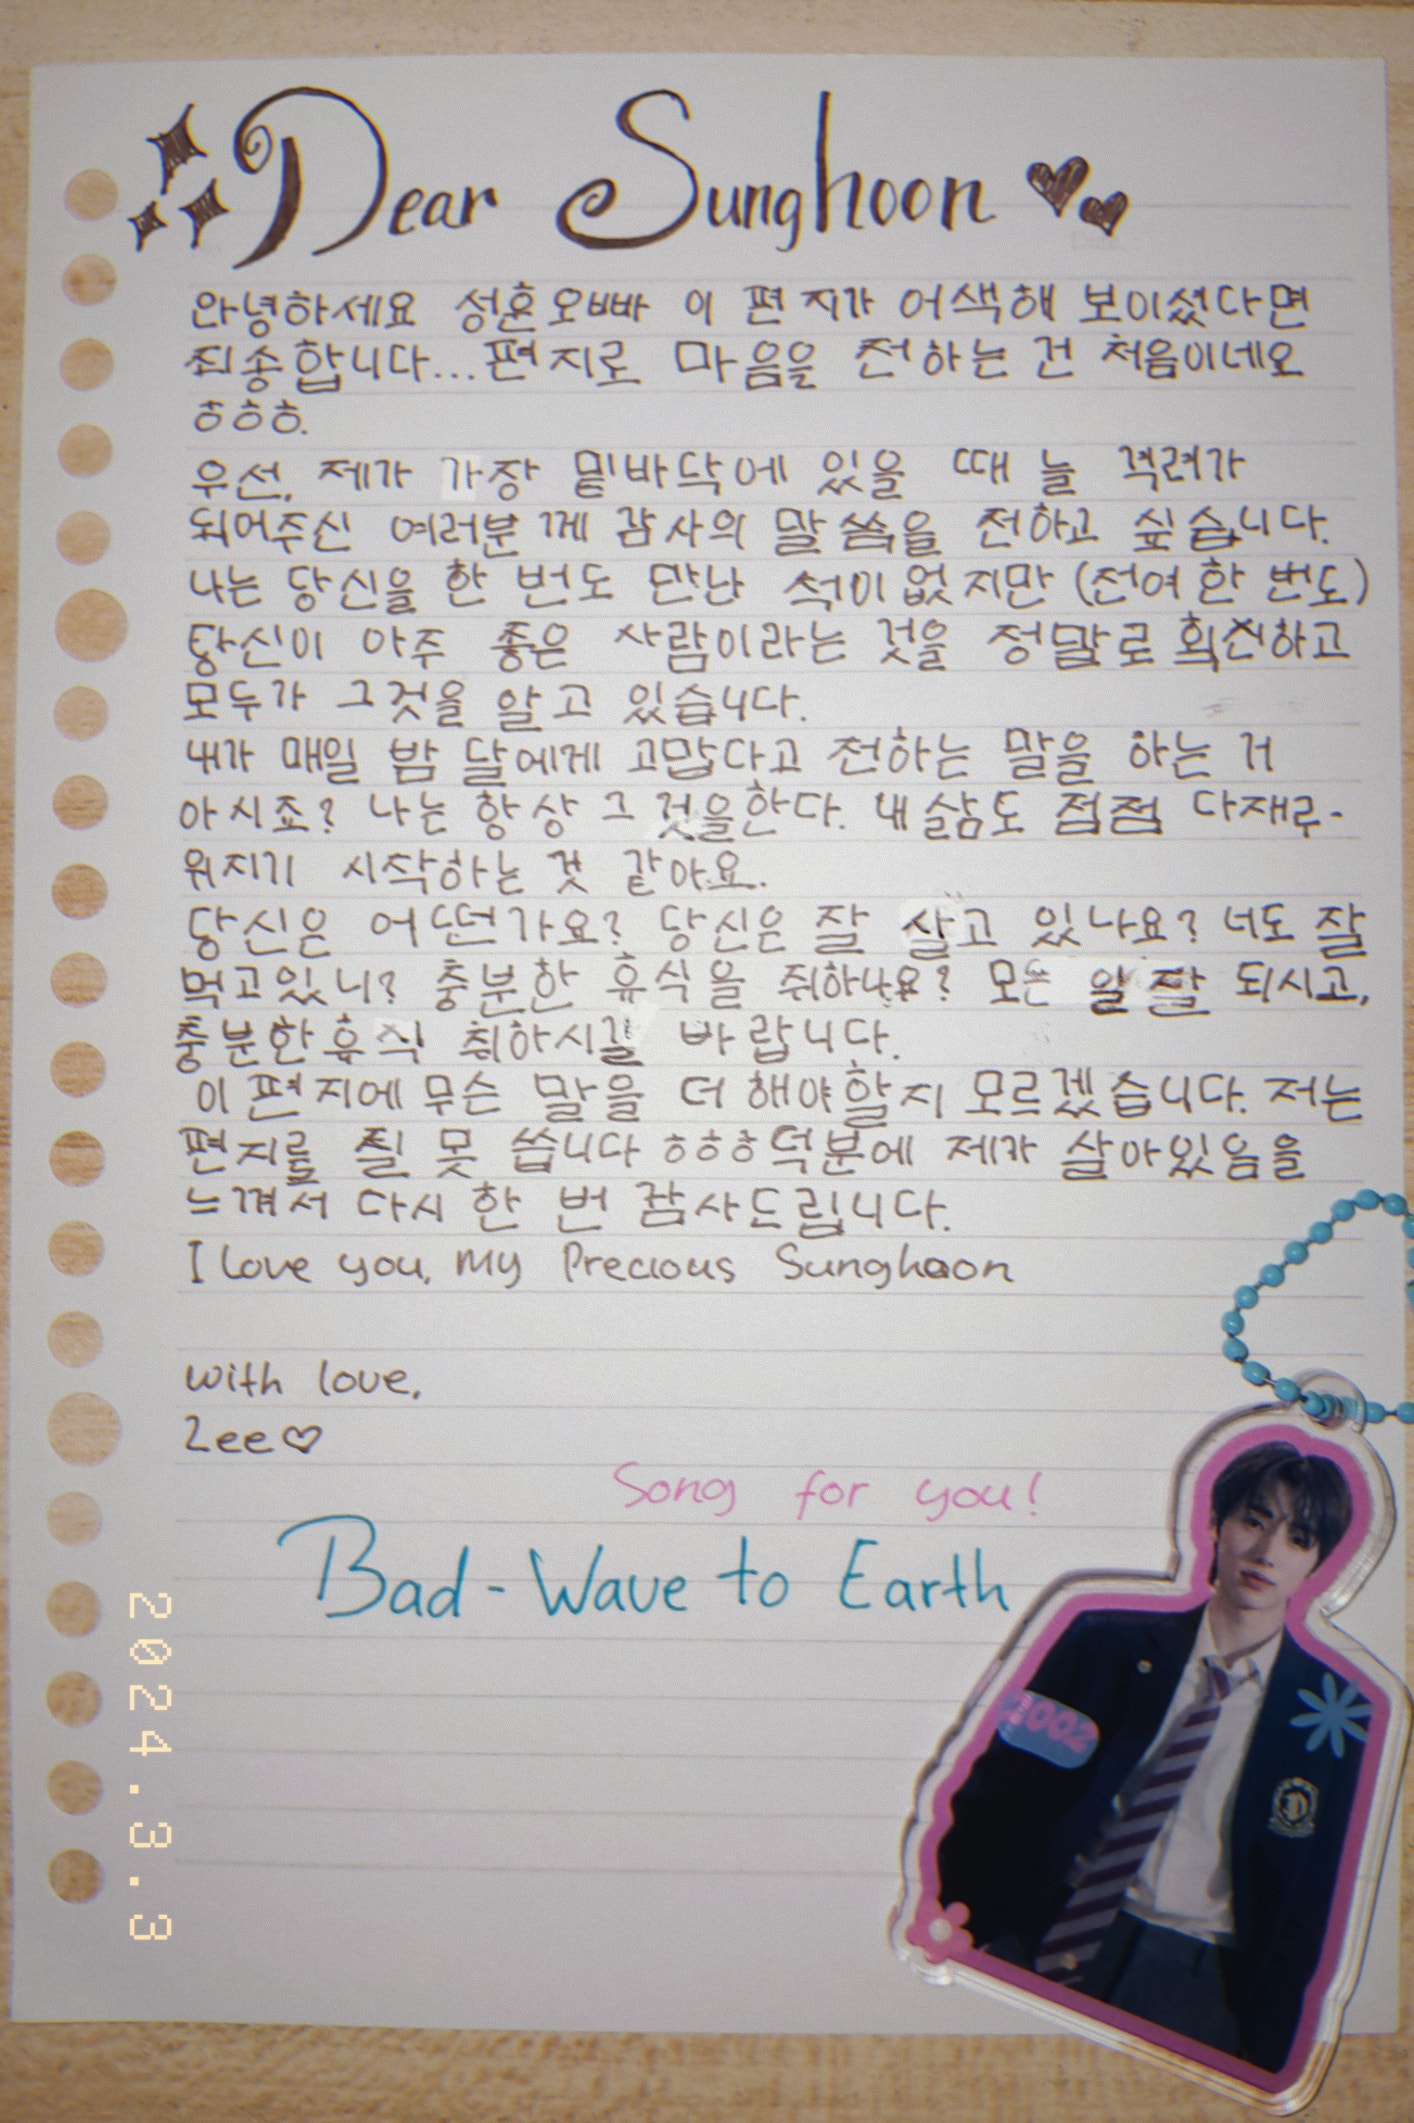 Dear Sunghoon
안녕하세요 성훈오빠 이 편지가 어색해 보이셨다면
죄송합니다...편지로 마음을 전하는 건 처음이네요
ㅎㅎㅎ.
우선, 제가 가장 밑바닥에 있을 때 늘 격려가
되어주신 여러분께 감사의 말씀을 전하고 싶습니다.
나는 당신을 한 번도 만난 적이 없지만 (전여 한 번도)
당신이 아주 좋은 사람이라는 것을 정말로 확신하고
모두가 그것을 알고 있습니다.
내가 매일 밤 달에게 고맙다고 전하는 말을 하는 거
아시죠? 나는 항상 그것을한다. 내 삶도 점점 다채로-
워지기 시작하는 것 같아요.
당신은 어떤가요? 당신은 잘 살고 있나요? 너도 잘
먹고있니? 충분한 휴식을 취하나요? 모든 일 잘 되시고,
충분한 휴식 취하시길 바랍니다.
이 편지에 무슨 말을 더 해야할지 모르겠습니다. 저는
편지를 잘 못 씁니다 ㅎㅎㅎ덕분에 제가 살아있음을
느껴서 다시 한 번 감사드립니다.
I love you, My Precious Sunghoon
with love,
Zee
Song for you!
Bad - Wave to Earth
2002
2024.3.3